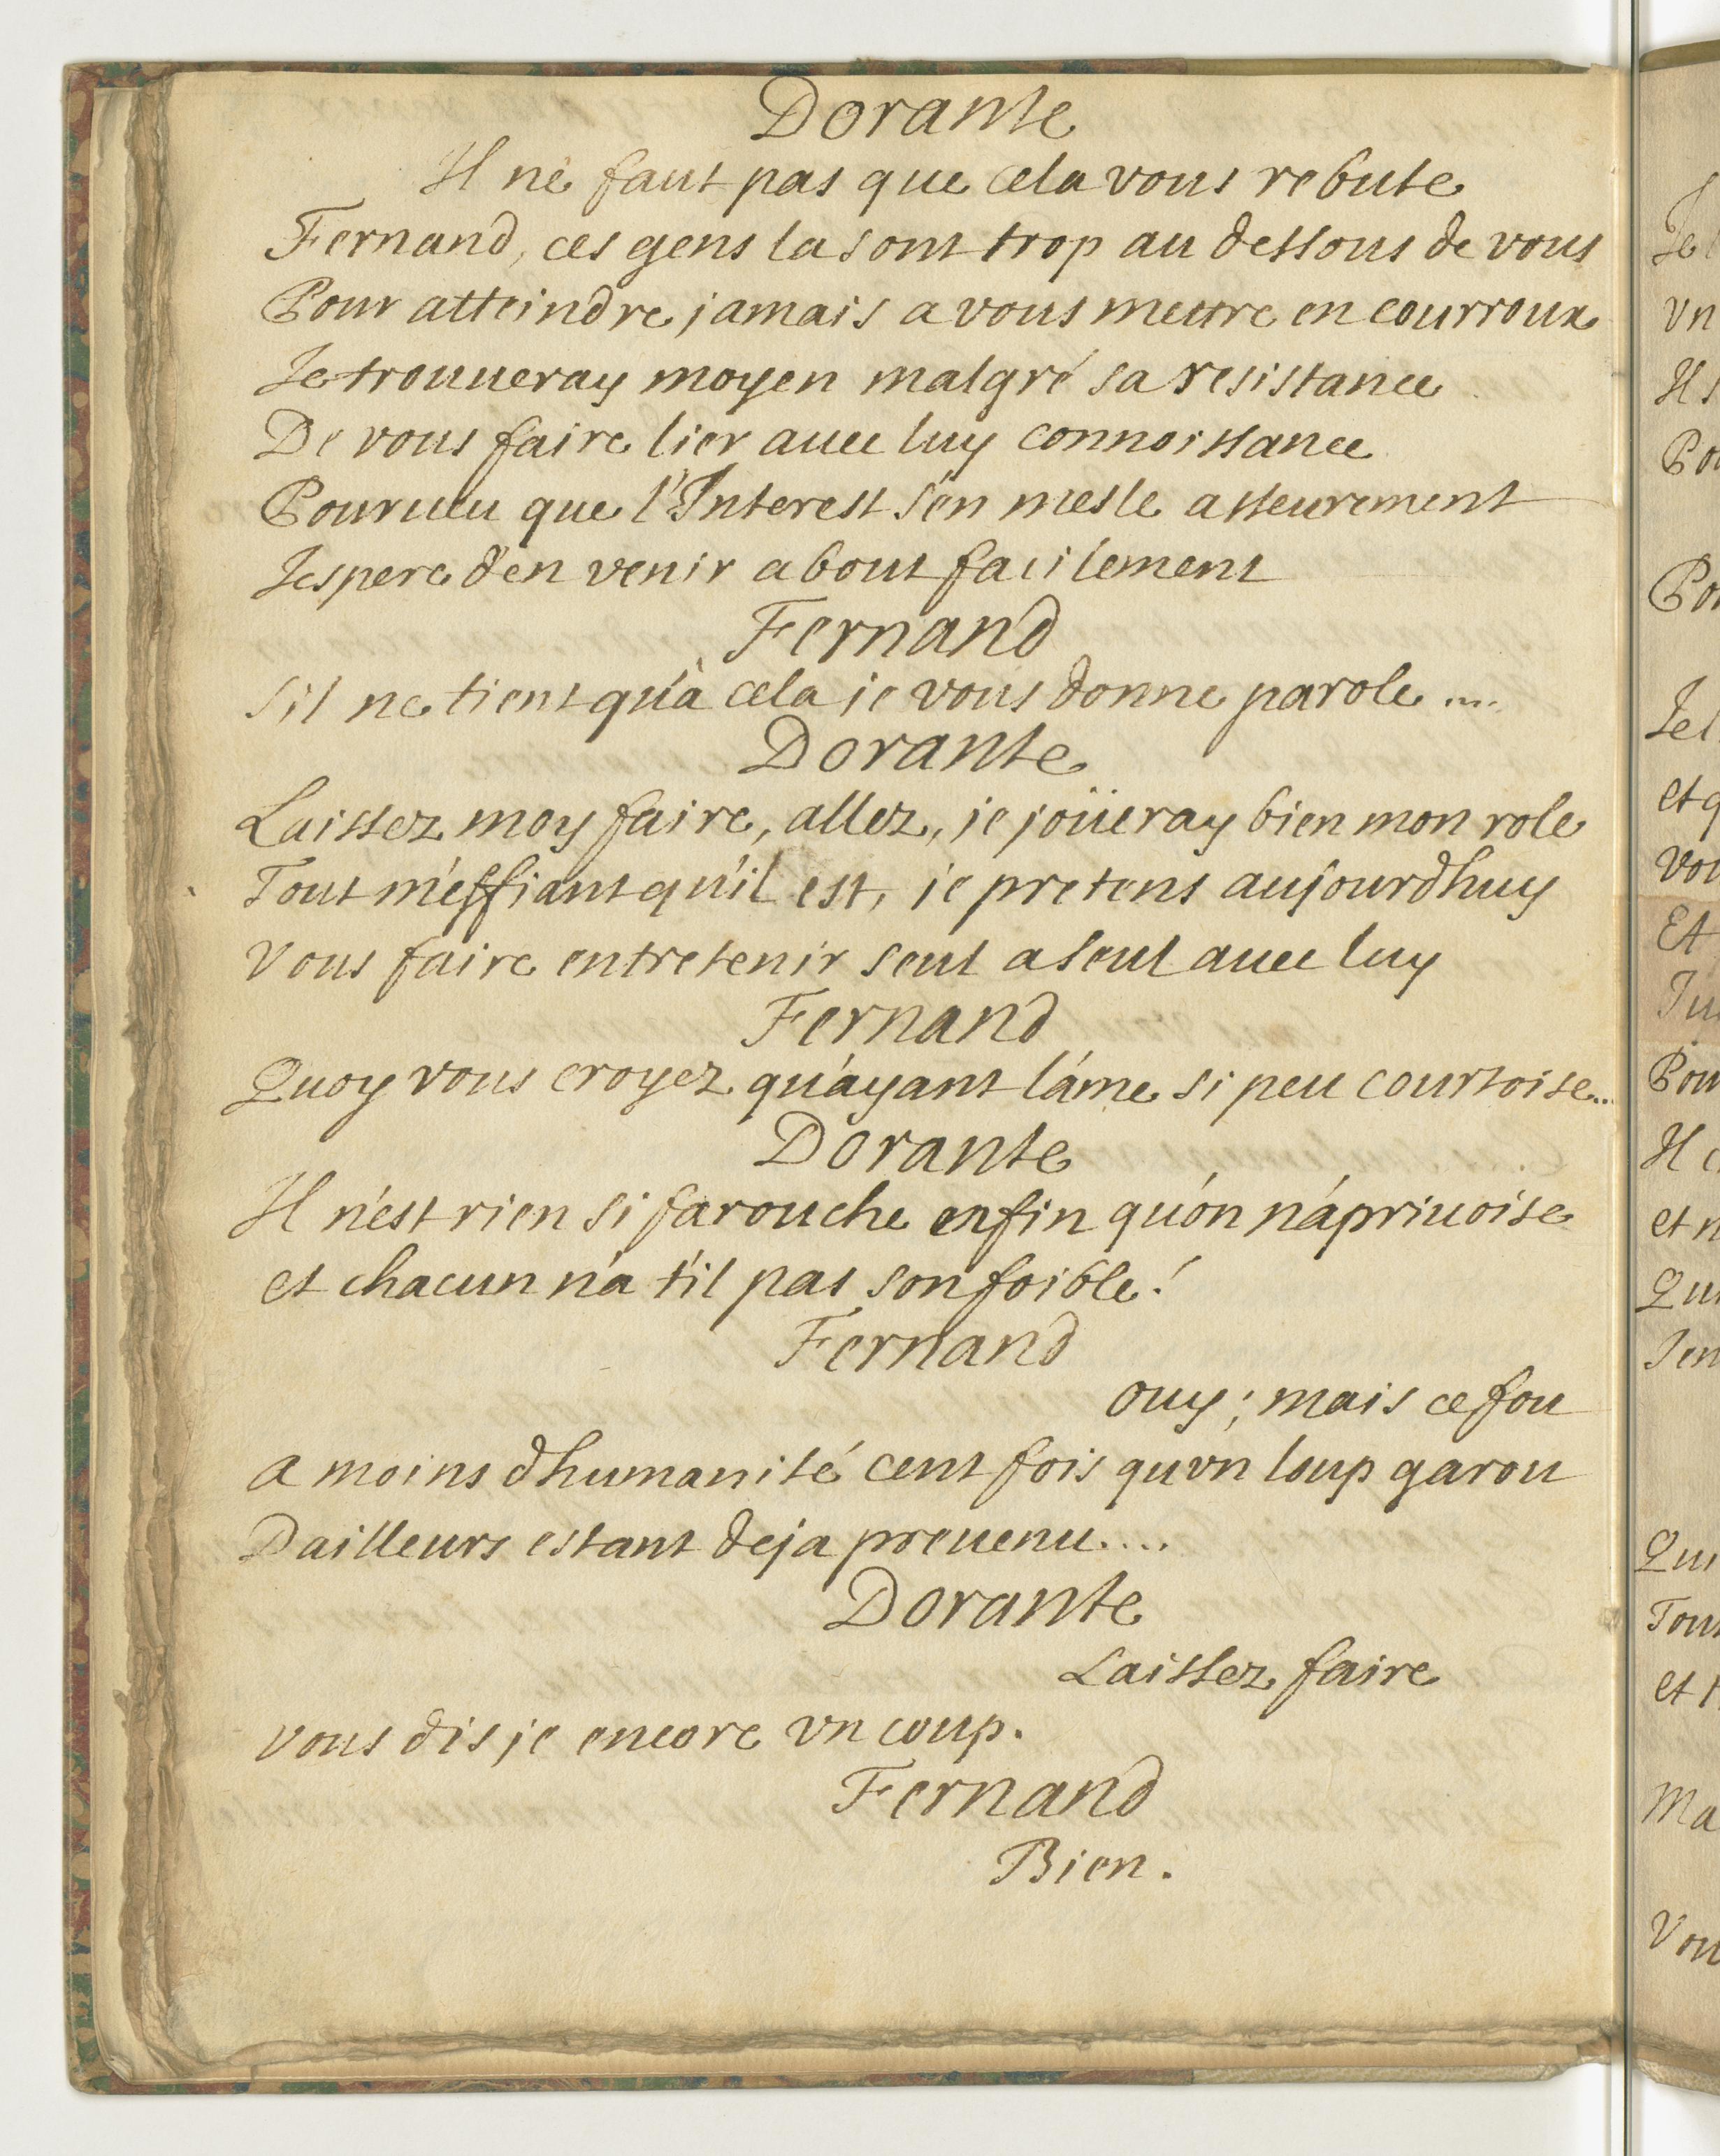 Dorante
Il ne faut pas que cela vous rebute
Fernand, ces gens la sont trop au dessous de vous
Pour atteindre jamais a vous mettre en courroux
Je trouueray moyen malgré sa resistance
De vous faire lier auec luy connoissance
Pourueu que l'Interest s'en mesle asseurement
Jespere d'en venir a bout facilement
Fernand
S'il ne tient qu'à cela je vous donne parole ....
Dorante
Laissez moy faire, allez, je joüeray bien mon role
Tout m'effiant qu'il est, je pretens aujourdhuy
Vous faire entretenir seul a seul auec luy
Fernand
Quoy vous croyez qu'ayant l'ame si peu courtoise...
Dorante
Il n'est rien si farouche enfin qu'on n'apriuoise
et chacun n'a t'il pas son foible!
Fernand
ouy; mais ce fou
a moins dhumanité cent fois quvn loup garou
Dailleurs estant deja preuenu....
Dorante
Laissez faire
vous dis je encore vn coup.
Fernand
Bien.